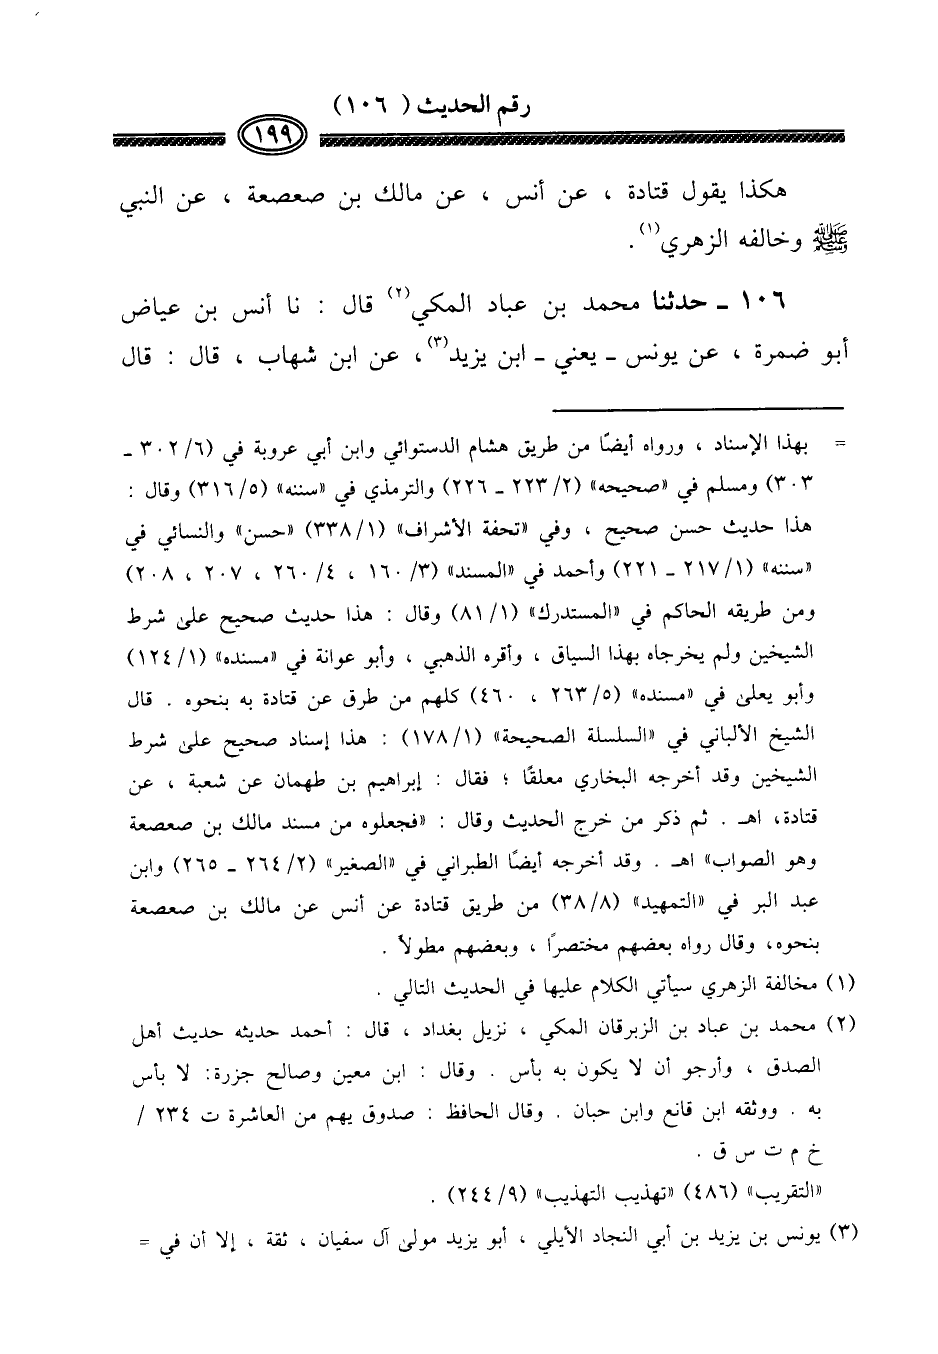 رقم الحديث ( ١٠٦ )
١٩٩
هكذا يقول قتادة ، عن أنس ، عن مالك بن صعصعة ، عن النبي
ﷺ وخالفه الزهري(١).
١٠٦ ـ حدثنا محمد بن عباد المكي(٢) قال : نا أنس بن عياض
أبو ضمرة ، عن يونس ـ يعني ـ ابن يزيد(٣)، عن ابن شهاب ، قال : قال
= بهذا الإسناد ، ورواه أيضًا من طريق هشام الدستوائي وابن أبي عروبة في (٣٠٢/٦ ـ
٣٠٣) ومسلم في «صحيحه» (٢٢٣/٢ ـ ٢٢٦) والترمذي في «سننه» (٣١٦/٥) وقال :
هذا حديث حسن صحيح ، وفي «تحفة الأشراف» (٣٣٨/١) «حسن» والنسائي في
«سننه» (٢١٧/١ ـ ٢٢١) وأحمد في «المسند» (١٦٠/٣ ، ٢٦٠/٤ ، ٢٠٧ ، ٢٠٨)
ومن طريقه الحاكم في «المستدرك» (٨١/١) وقال : هذا حديث صحيح على شرط
الشيخين ولم يخرجاه بهذا السياق ، وأقره الذهبي ، وأبو عوانة في «مسنده» (١٢٤/١)
وأبو يعلى في «مسنده» (٢٦٣/٥ ، ٤٦٠) كلهم من طرق عن قتادة به بنحوه . قال
الشيخ الألباني في «السلسلة الصحيحة» (١٧٨/١) : هذا إسناد صحيح على شرط
الشيخين وقد أخرجه البخاري معلقًا ؛ فقال : إبراهيم بن طهمان عن شعبة ، عن
قتادة، اهـ . ثم ذكر من خرج الحديث وقال : «فجعلوه من مسند مالك بن صعصعة
وهو الصواب» اهـ . وقد أخرجه أيضًا الطبراني في «الصغير» (٢٦٤/٢ ـ ٢٦٥) وابن
عبد البر في «التمهيد» (٣٨/٨) من طريق قتادة عن أنس عن مالك بن صعصعة
بنحوه، وقال رواه بعضهم مختصرًا ، وبعضهم مطولاً .
(١) مخالفة الزهري سيأتي الكلام عليها في الحديث التالي .
(٢) محمد بن عباد بن الزبرقان المكي ، نزيل بغداد ، قال : أحمد حديثه حديث أهل
الصدق ، وأرجو أن لا يكون به بأس . وقال : ابن معين وصالح جزرة: لا بأس
به . ووثقه ابن قانع وابن حبان . وقال الحافظ : صدوق يهم من العاشرة ت ٢٣٤ /
خ م ت س ق .
«التقريب» (٤٨٦) «تهذيب التهذيب» (٢٤٤/٩) .
(٣) يونس بن يزيد بن أبي النجاد الأيلي ، أبو يزيد مولى آل سفيان ، ثقة ، إلا أن في =